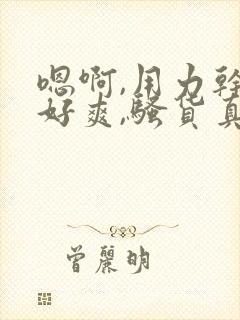 嗯啊,用力幹
好爽,騷货真
曾麗明